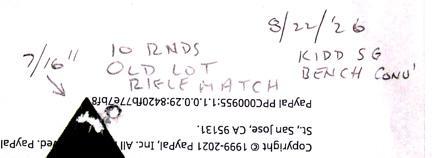 8/22/'26
7/16"
10 RNDS
OLD LOT
RIFLE MATCH
KIDD SG
BENCH CONV'
PayPal PPC000955:1.1.0.0.29:8420fb77e7bf8
St., San Jose, CA 95131.
Copyright © 1999-2021 PayPal, Inc. All
ved. PayPal